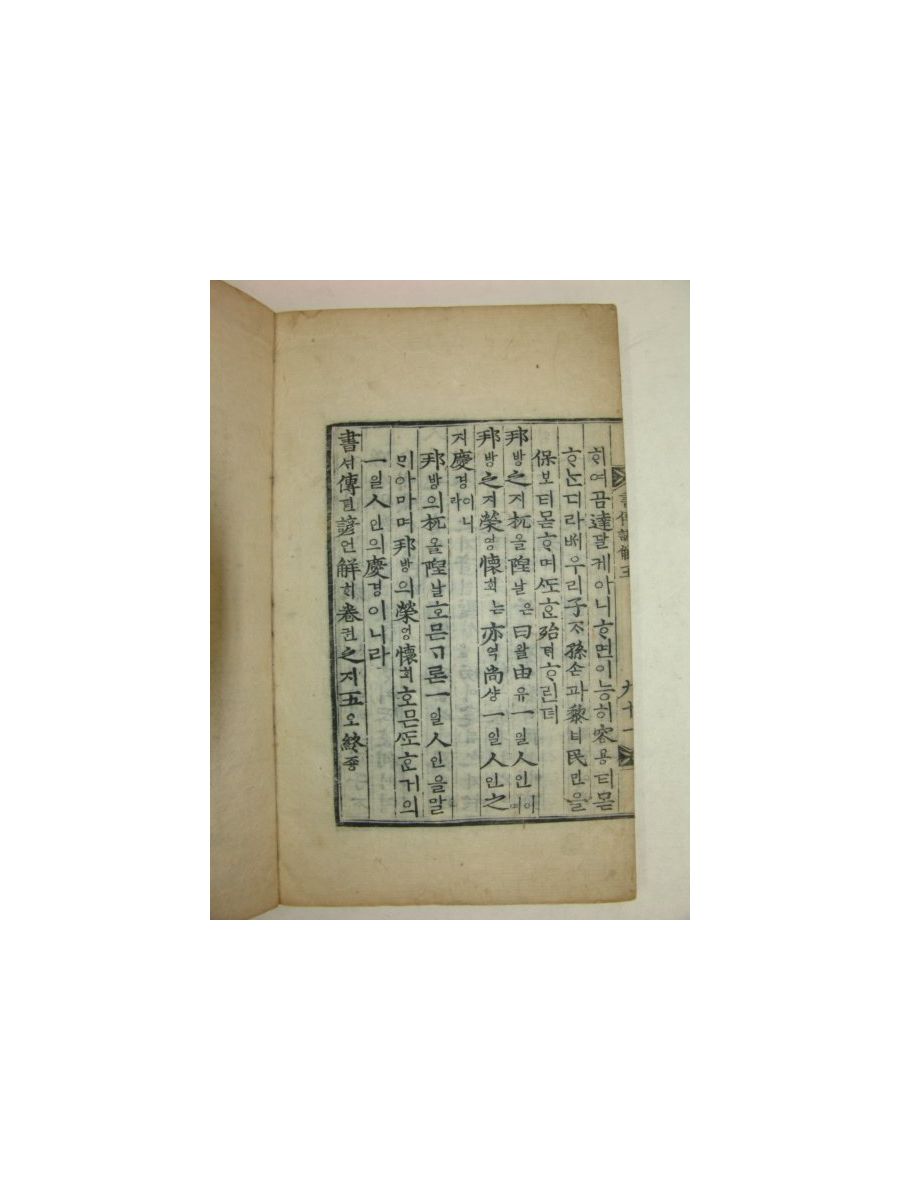 ᄒᆞ여곰達달케아니ᄒᆞ면이능히容용티몯
ᄒᆞᄂᆞᆫ디라ᄡᅥ우리子ᄌᆞ孫손과黎려民민을
保보티몯ᄒᆞ며ᄯᅩᄒᆞᆫ殆ᄐᆡᄒᆞ린뎌
邦방之지杌올隉날은曰왈由유一일人인이며
邦방之지榮영懷회는亦역尚샹一일人인之
지慶경이니라
邦방의杌올隉날호믄ᄀᆞ론一일人인을말
ᄆᆡ아마며邦방의榮영懷회호믄ᄯᅩᄒᆞᆫ거의
一일人인의慶경이니라
書셔傳뎐諺언解ᄒᆡ卷권之지五오終죵
書傳諺解 五
九十一